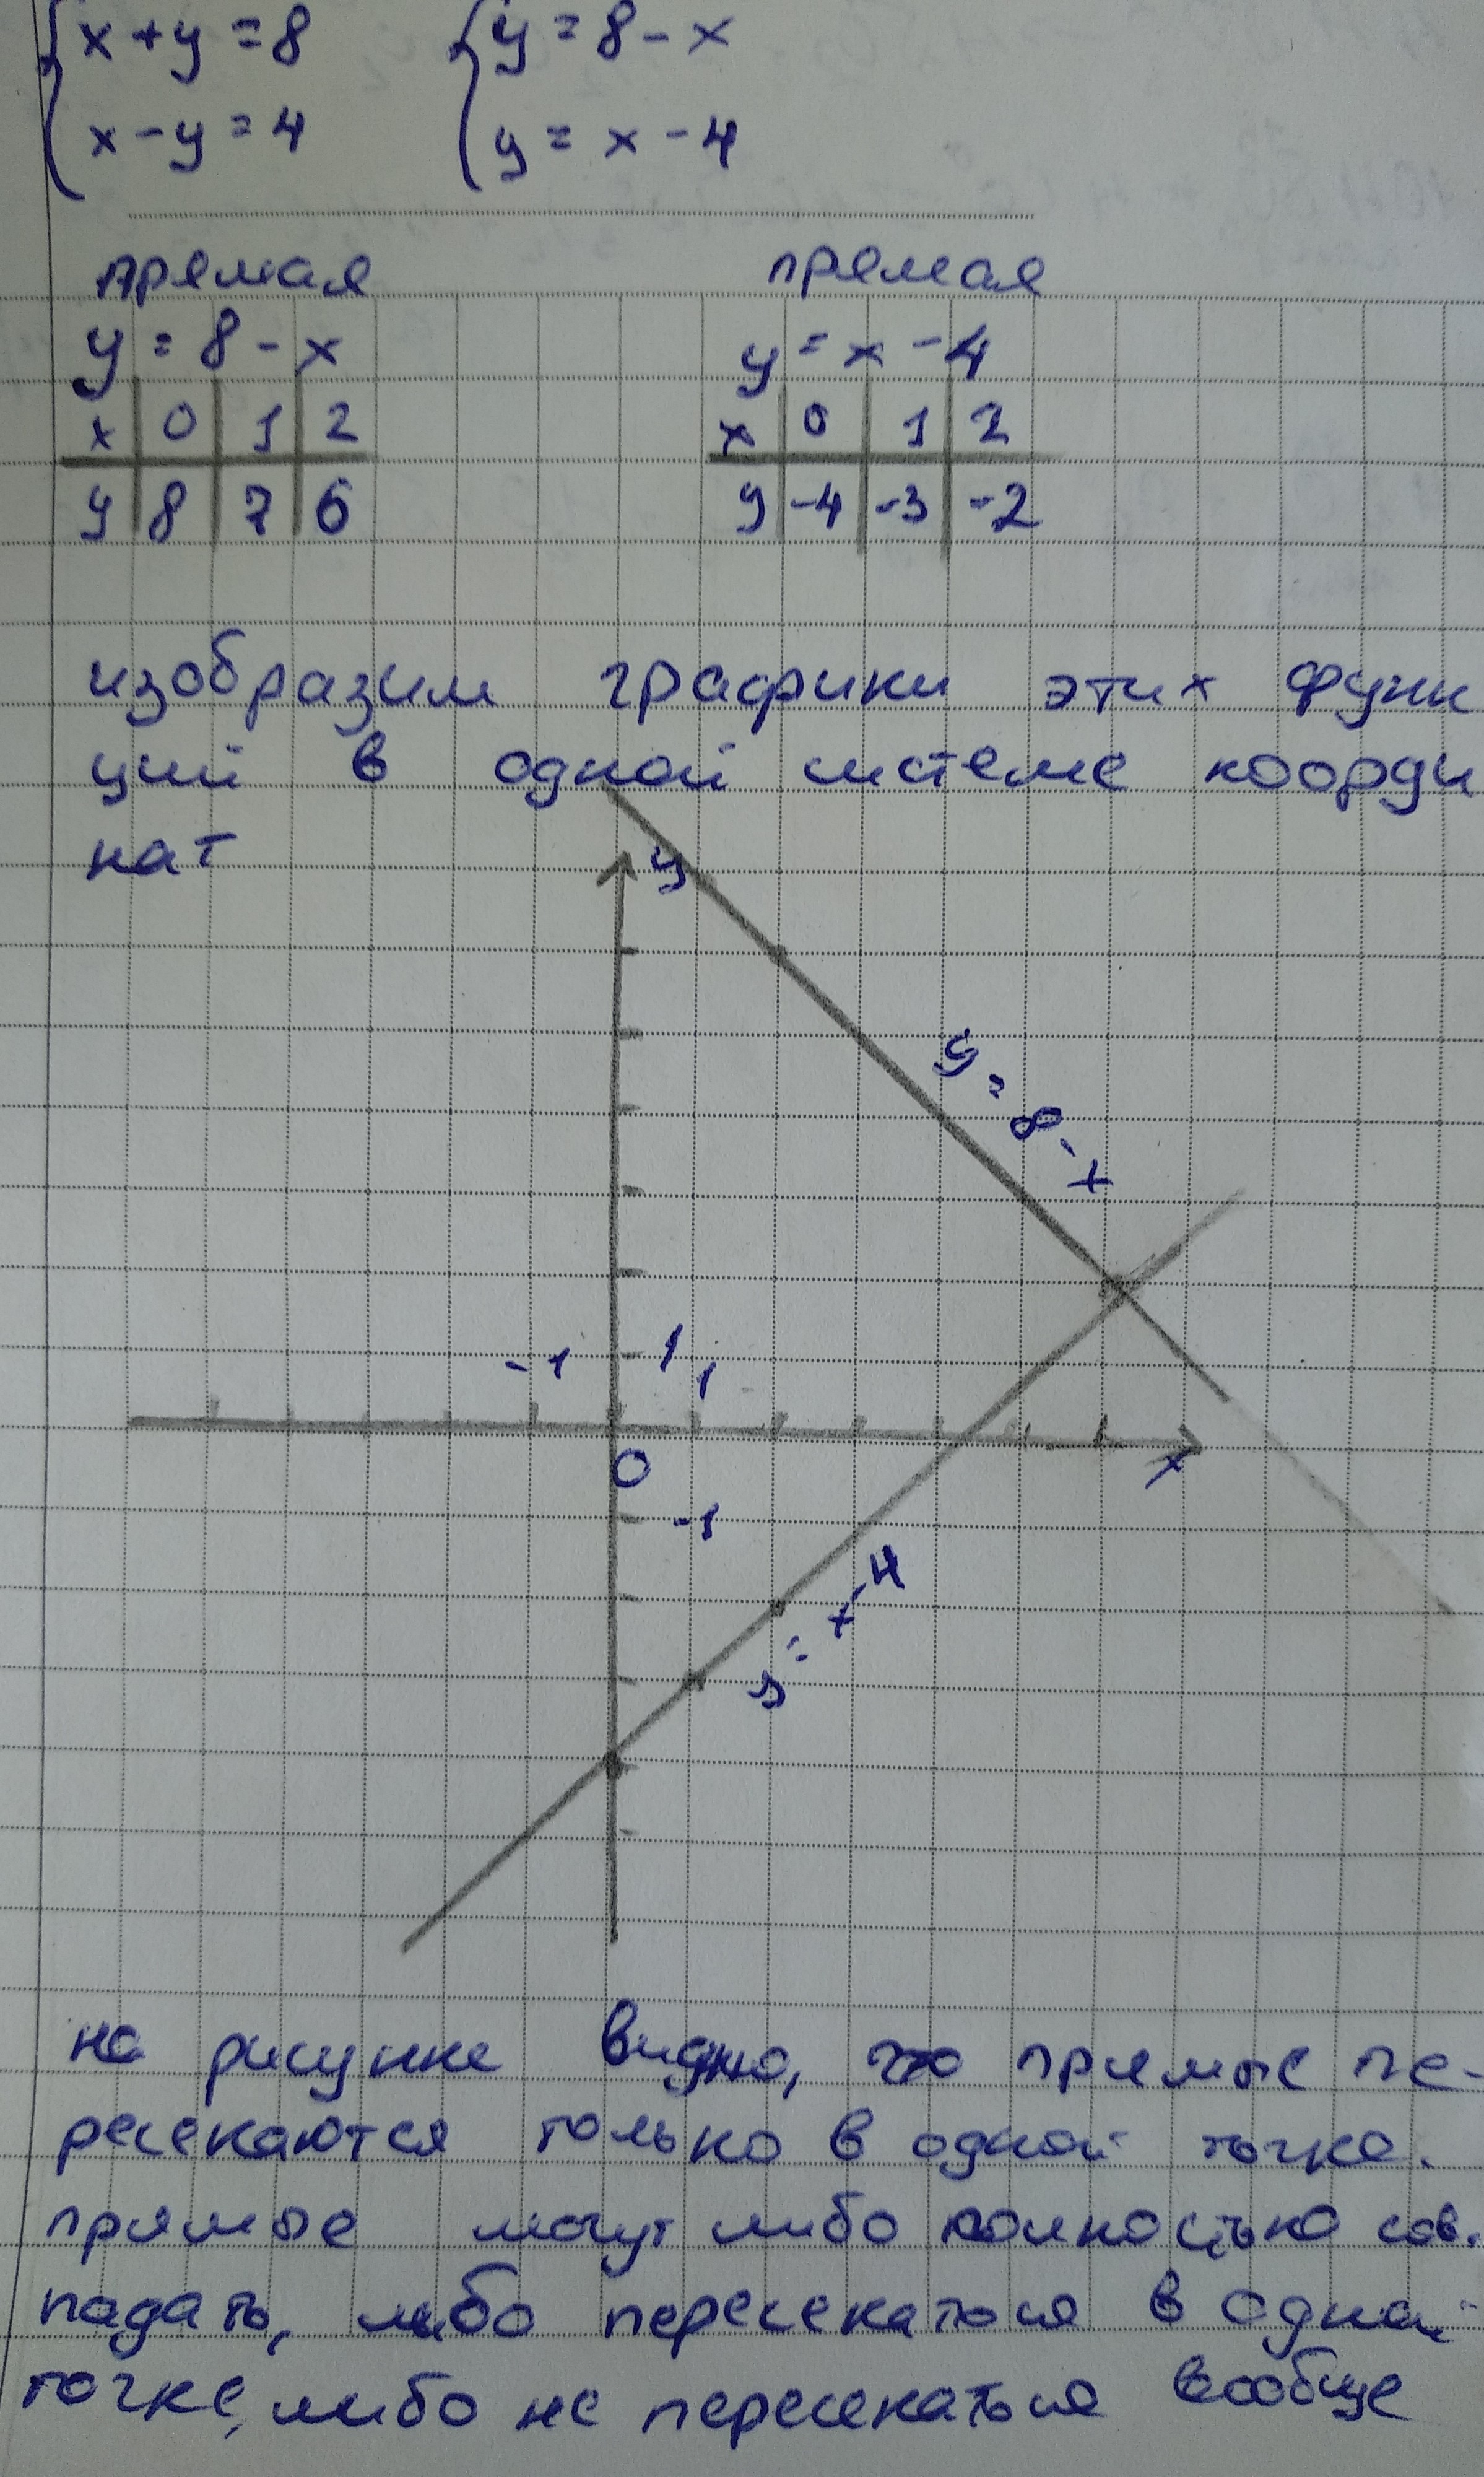 {x+y=8 {y=8-x
{x-y=4 {y=x-4
прямая прямая
y=8-x y=x-4
x 0 1 2 x 0 1 2
y 8 7 6 y -4 -3 -2
изобразим графики этих функ
ций в одной системе коорди
нат
y
y=8-x
-1 1 1
0 x
-1
y=x-4
на рисунке видно, что прямые пе-
ресекаются только в одной точке.
прямые могут либо полностью сов-
падать, либо пересекаться в одной
точке, либо не пересекаться вообще